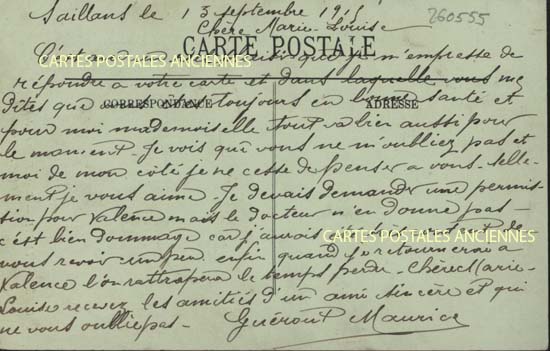 Saillans le 13 septembre 191
260555
Chère Marie-Louise
CARTE POSTALE
C'est avec que je m'empresse de
CARTES POSTALES ANCIENNES
répondre a votre carte et dans laquelle vous me
dites que vous toujours en bonne santé et
CORRESPONDANCE
ADRESSE
pour moi mademoiselle tout va bien aussi pour
le moment. Je vois que vous ne m'oubliez pas et
moi de mon côté je ne cesse de penser a vous telle-
ment je vous aime. Je devais demander une permis-
sion pour Valence mais le docteur n'en donne pas
c'est bien dommage car j'aurais de
CARTES POSTALES ANCIENNES
vous revoir un peu enfin quand je retournerai a
Valence l'on rattrapera le temps perdu. Chère Marie-
Louise recevez les amitiés d'un ami sincère et qui
ne vous oublie pas - Guérout Maurice